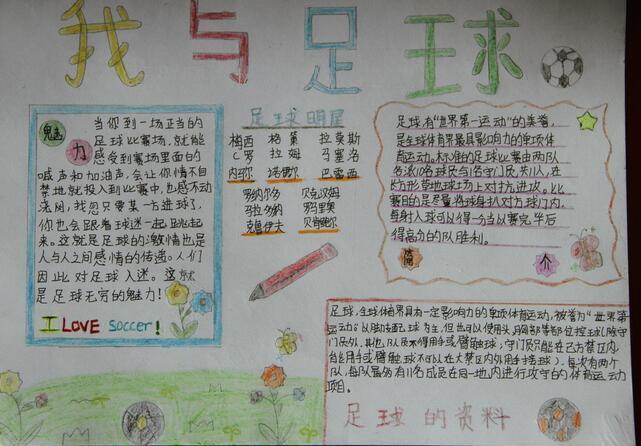 我与足球
魅力
当你到一场正当的
足球比赛场,就能
感受到赛场里面的
喊声和加油声,会让你情不自
禁地就投入到比赛中,也感不动
找忽只要某一方进球了,
你也会跟着球迷一起跳起
来。这就是足球的激情也是
人与人之间感情的传递。人们
因此对足球入迷。这就
是足球无穷的魅力!
I LOVE SOCCER!
足球明星
梅西 格策 拉莫斯
C罗 拉姆 马塞洛
内马尔 诺伊尔 巴雷西
罗纳尔多 贝克汉姆
马拉多纳
克鲁伊夫 贝肯鲍尔
足球有“世界第一运动”的美誉,
是全球体育界最具影响力的单项体
育运动。标准的足球比赛由两队
各派10名球员与1名守门员,共11人,在
长方形草地球场上对抗、进攻。比
赛目的是尽量将球射入对方球门内,
每射入球可以得一分,当比赛完毕后
得高分的队胜利。
简介
足球,全球体育界具有一定影响力的单项体育运动,被誉为“世界第
一运动”以脚支配球为主,但也可以使用头、胸部等部位控球(除守
门员外,其他队员不得用手或臂触球,守门员只能在己方禁区内
能用手或臂触球不可以在大禁区内外用手接球)。每次有两个
队,每队最多有11名成员在同一地内进行攻守的体育运动
项目。
足球的资料